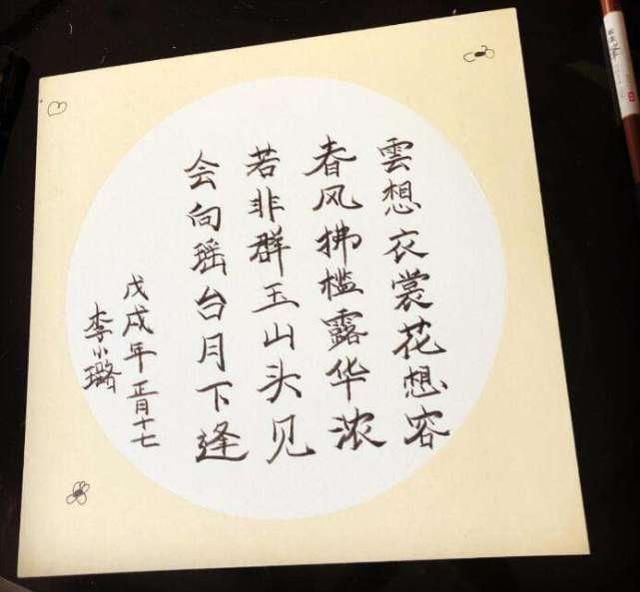 雲想衣裳花想容
春风拂槛露华浓
若非群玉山头见
会向瑶台月下逢
戊戌年正月十七
李小璐